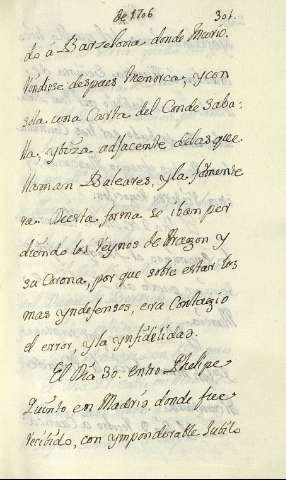 de 1706 301.
do a Barzelona donde murió.
Rindiose despues Menorca, y con
sola una Carta del Conde Saba-
lla, y biza adjacente delas que
llaman Baleares, y la
ra. Desta forma se iban per
diendo los Reynos de Aragon y
su Corona, por que sobre estar los
mas yndefensos, era Contagio
el error, y la ynfidelidad.
El Dia 30. entro Phelipe
Quinto en Madrid, donde fue
recibido, con ymponderable Jubilo